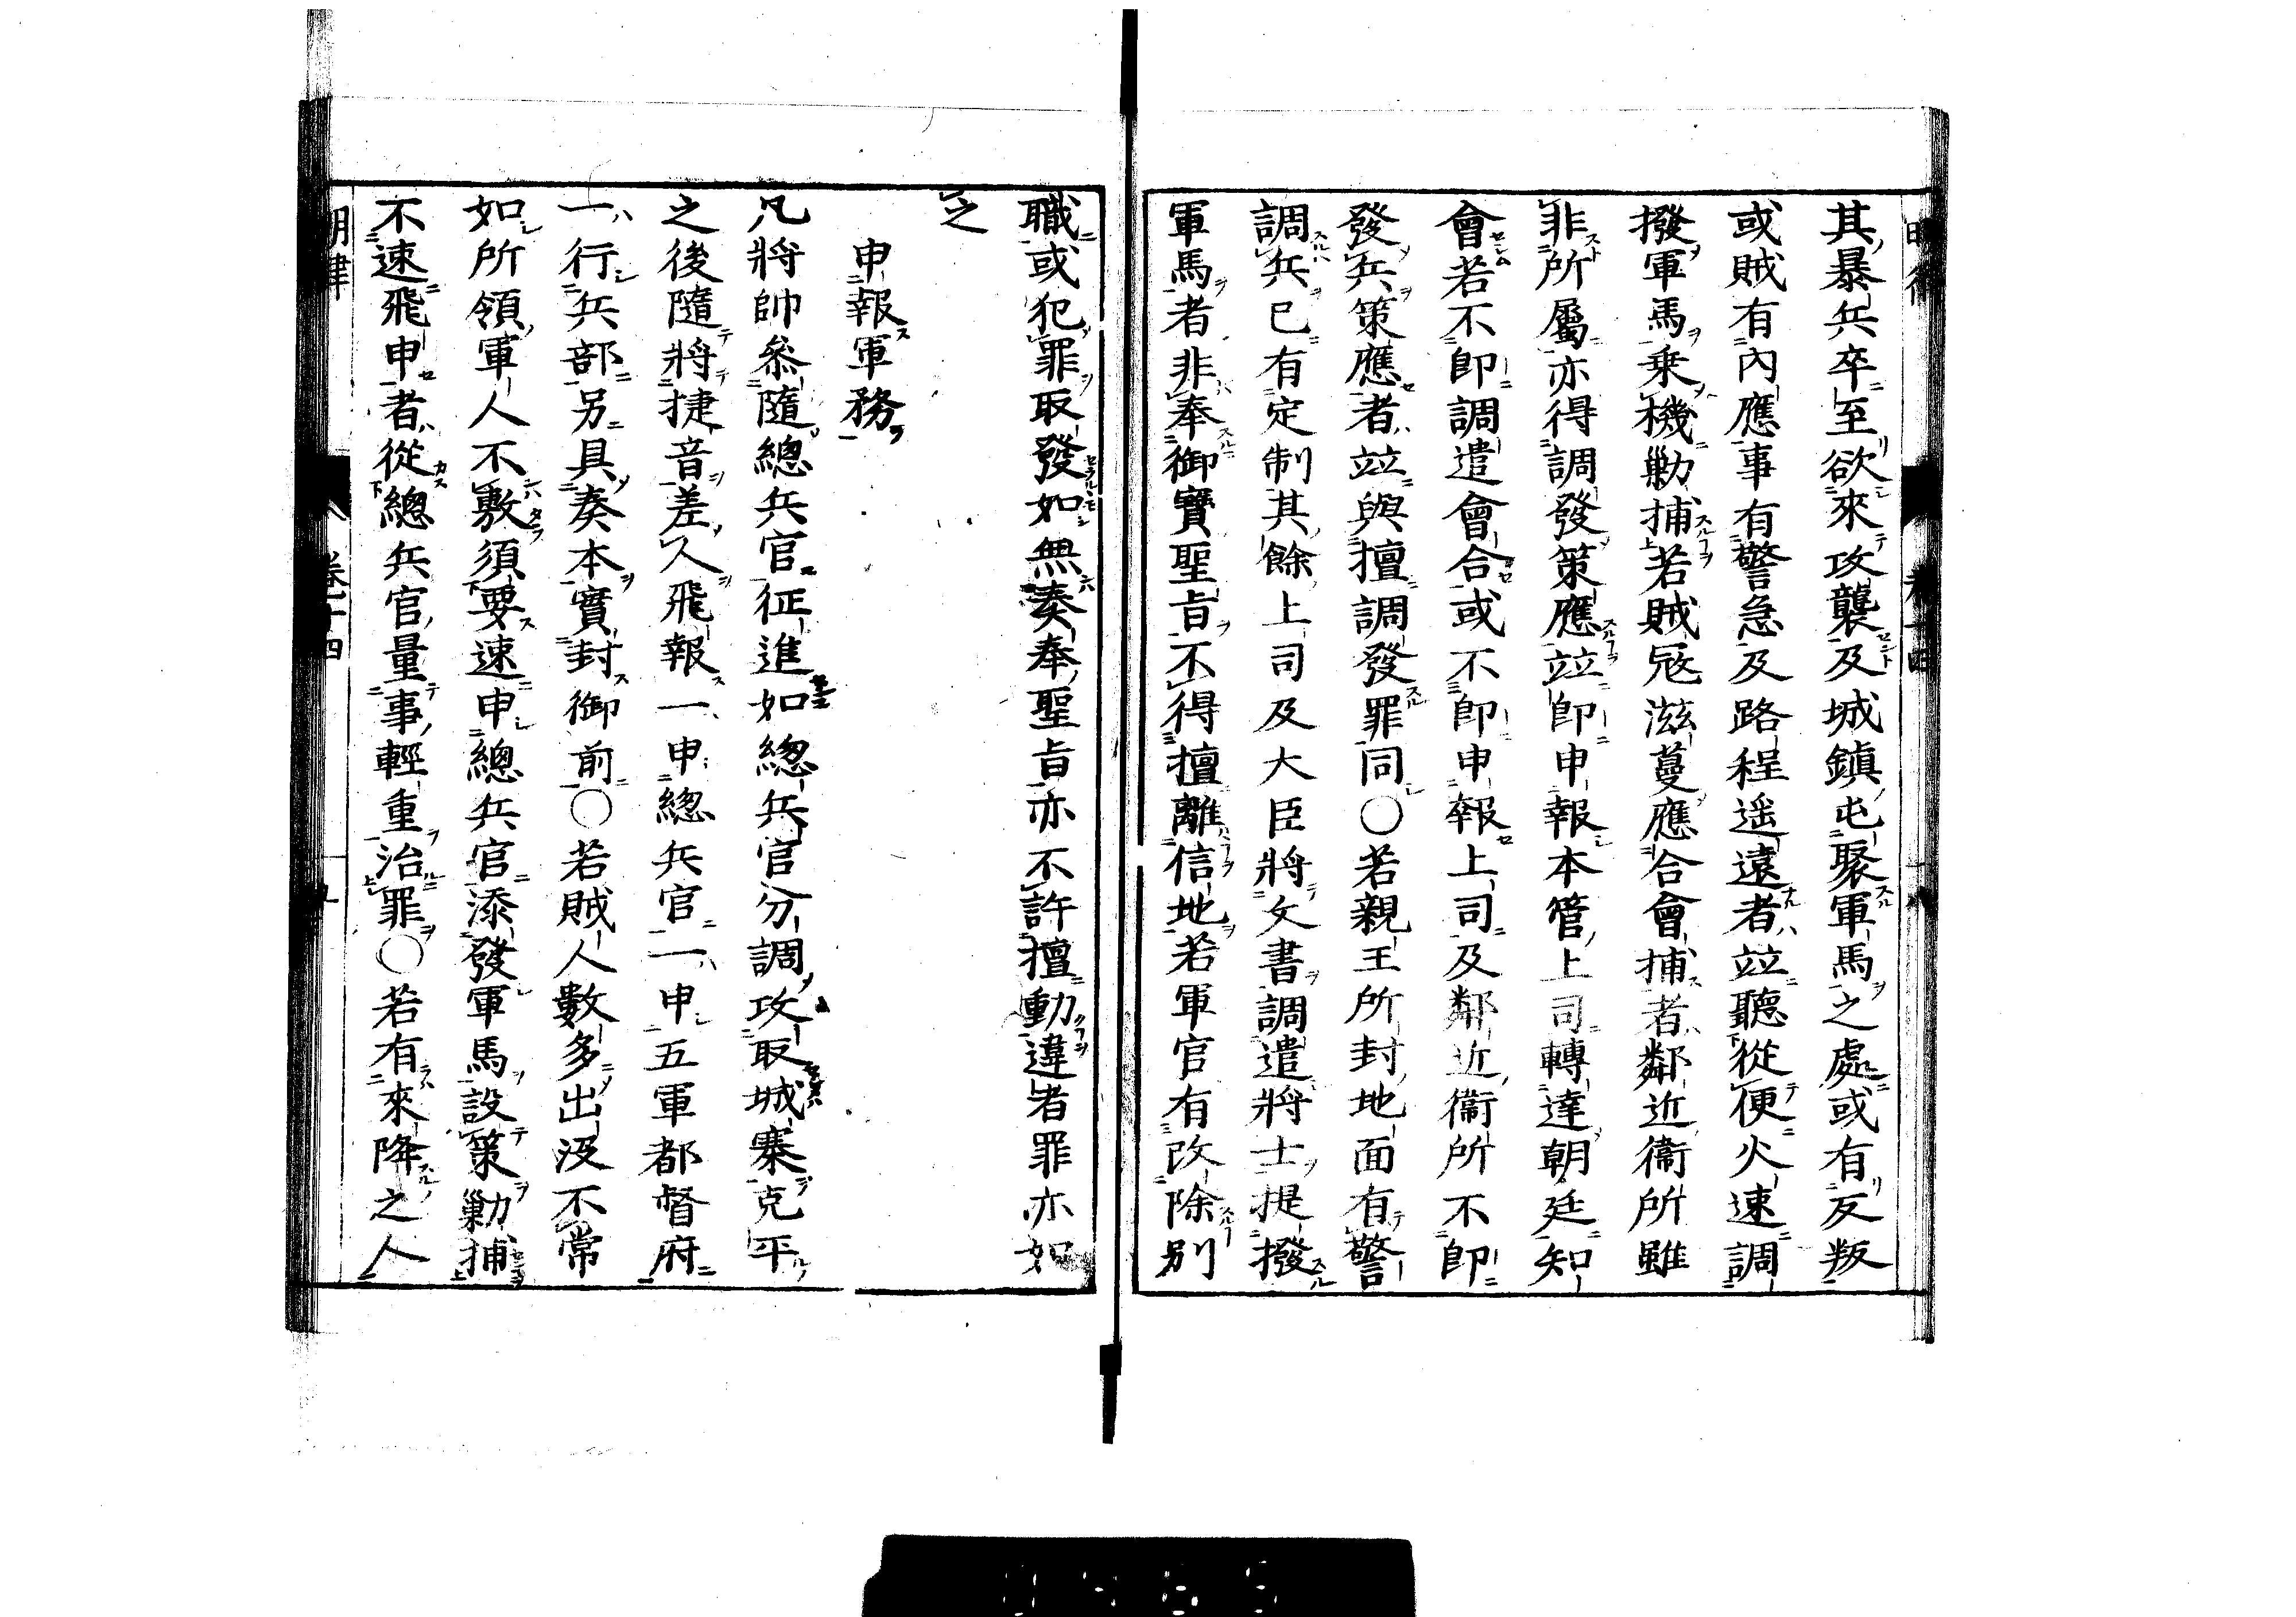 其暴兵卒至欲來攻襲及城鎮屯聚軍馬之處或有反叛
或賊有內應事有警急及路程遥遠者竝聽從便火速調
撥軍馬乗機勦捕若賊冦滋蔓應合會捕者鄰近衞所雖
非所屬亦得調發策應竝即申報本管上司轉達朝廷知
會若不即調遣會合或不即申報上司及鄰近衞所不即
發兵策應者竝與擅調發罪同〇若親王所封地面有警
調兵已有定制其餘上司及大臣將文書調遣將士提撥
軍馬者非奉御寶聖旨不得擅離信地若軍官有改除別
職或犯罪取發如無奏奉聖旨亦不許擅動違者罪亦如
之
申報軍務
凡將帥叅隨總兵官征進如總兵官分調攻取城寨克平
之後隨將捷音差人飛報一申總兵官一申五軍都督府
一行兵部另具奏本實封御前〇若賊人數多出沒不常
如所領軍人不敷須要速申總兵官添發軍馬設策勦捕
不速飛申者從總兵官量事輕重治罪〇若有來降之人